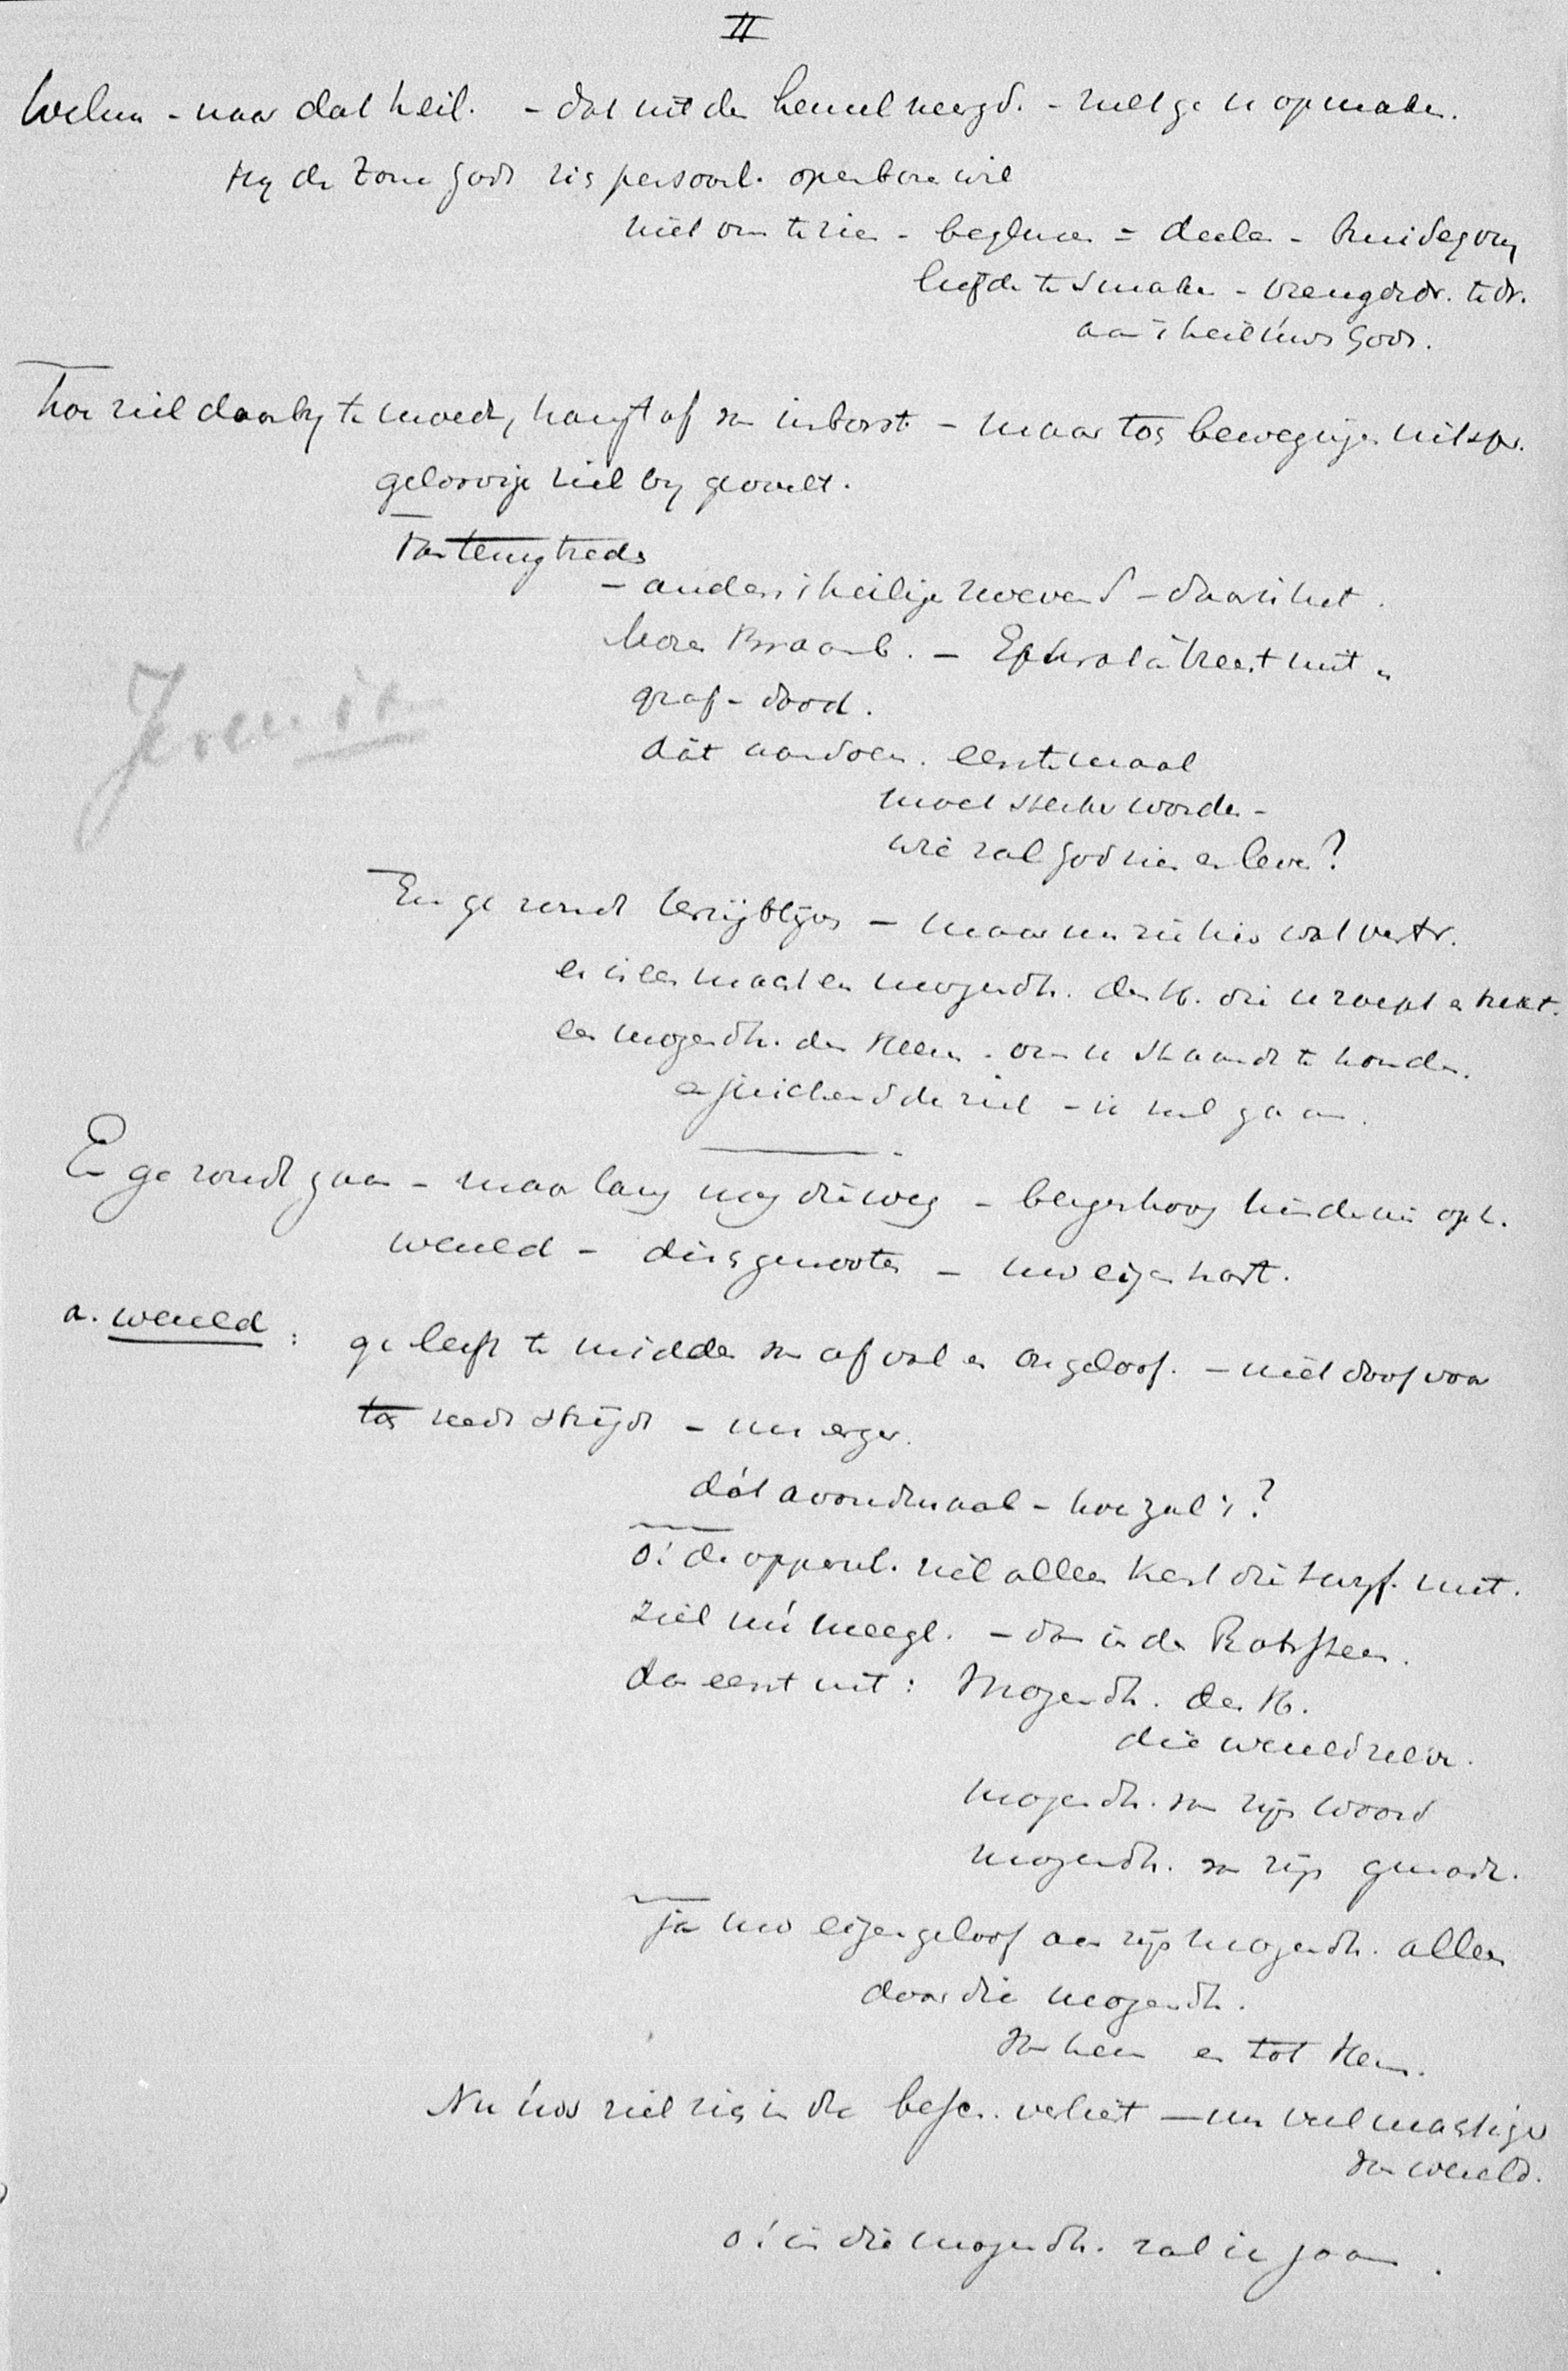 II
Welnu - naar dat heil. - dat uit den hemel neergd. - zult ge u opmaken.
Hy de Zone Gods zig persoonl. openbaren wil
niet om te zien - begluren = deelen - bruidegom
liefde te smaken - vreugdedr. te dr.
aan 't heil uws Gods.
Hoe ziel daarby te moede, hangt af van inborst - maar tog bewegingen uitspr.
geloovige ziel by gevoelt.
Van terugtreden
- anders 't heilige zwevend - daar is het
Moses Braamb. - Ephrata treedt uit
graf - dood.
dát aandoen. eerstemaal
moet sterker worden -
wie zal God zien en leven?
En ge zoudt terugblyven - maar nu zie hier wat vertr.
er is een macht en mogendh. des H. die u roept en trekt.
een mogendh. des Heeren - om u staande te houden.
en juichend de ziel - ik zal gaan.
En ge zoudt gaan - maar lang nog die weg - bergenhoog hindernis op t.
wereld - disgenooten - uw eigen hart.
a. wereld : ge leeft te midden van afval en ongeloof. - niet doof voor
tog reeds strijd - nu erger.
dát avondmaal - hoe zal 't?
o! de oppervl. ziel alleen
ziel nú - dan is de Rotssteen.
dan eerst uit: Mogendh. des H.
die wereld
mogendh. van zijn woord
mogendh. van zijn genade.
ja uw eigen geloof aan zijn mogendh. alleen
door die mogendh.
van hem en tot Hem.
Nu úw ziel zig in die verliet - nu veel machtiger
dan wereld.
o! in die mogendh. zal ik gaan.